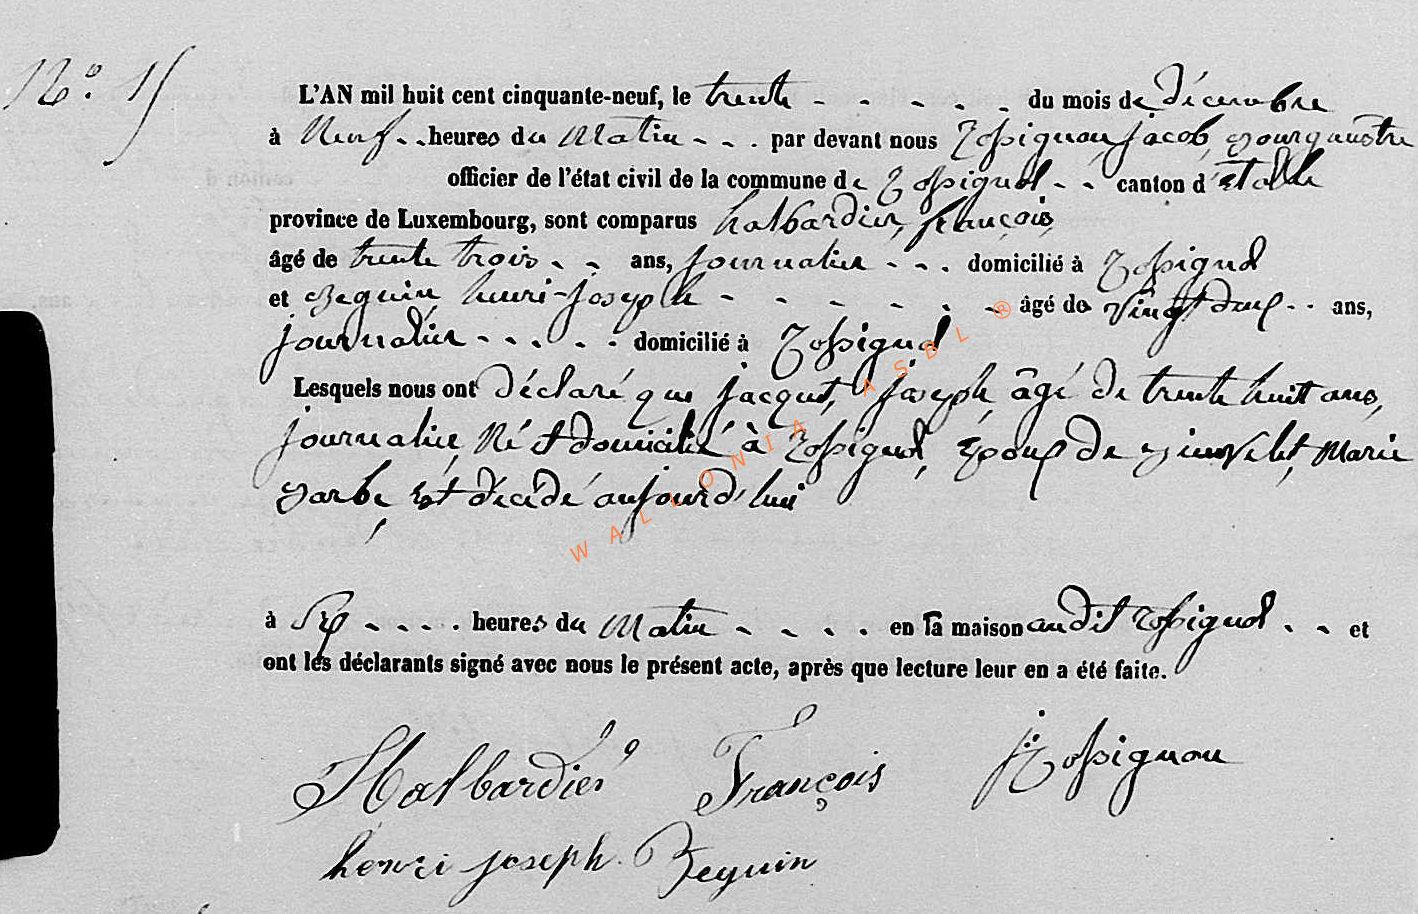 N°. 15
L'AN mil huit cent cinquante-neuf, le trente - - - - - du mois de décembre
à Neuf - - heures du Matin - - - par devant nous Rossignon, jacob, Bourgmestre
officier de l'état civil de la commune de Rossignol - - canton d'étalle
province de Luxembourg, sont comparus halbardier, françois,
âgé de trente trois - - ans, journalier - - - domicilié à Rossignol
et Beguin, henri-joseph - - - - - - - âgé de vingt deux - - ans,
journalier - - - - - domicilié à Rossignol
Lesquels nous ont déclaré que jacquet, joseph, âgé de trente huit ans,
journalier, Né et domicilié à Rossignol, Epoux de Marie
Barbe, est décédé aujourd'hui
à six - - - - heures du Matin - - - - en la maison audit Rossignol - - et
ont les déclarants signé avec nous le présent acte, après que lecture leur en a été faite.
Halbardier François J. Rossignon
henri joseph Beguin
WALLONIA ASBL ®